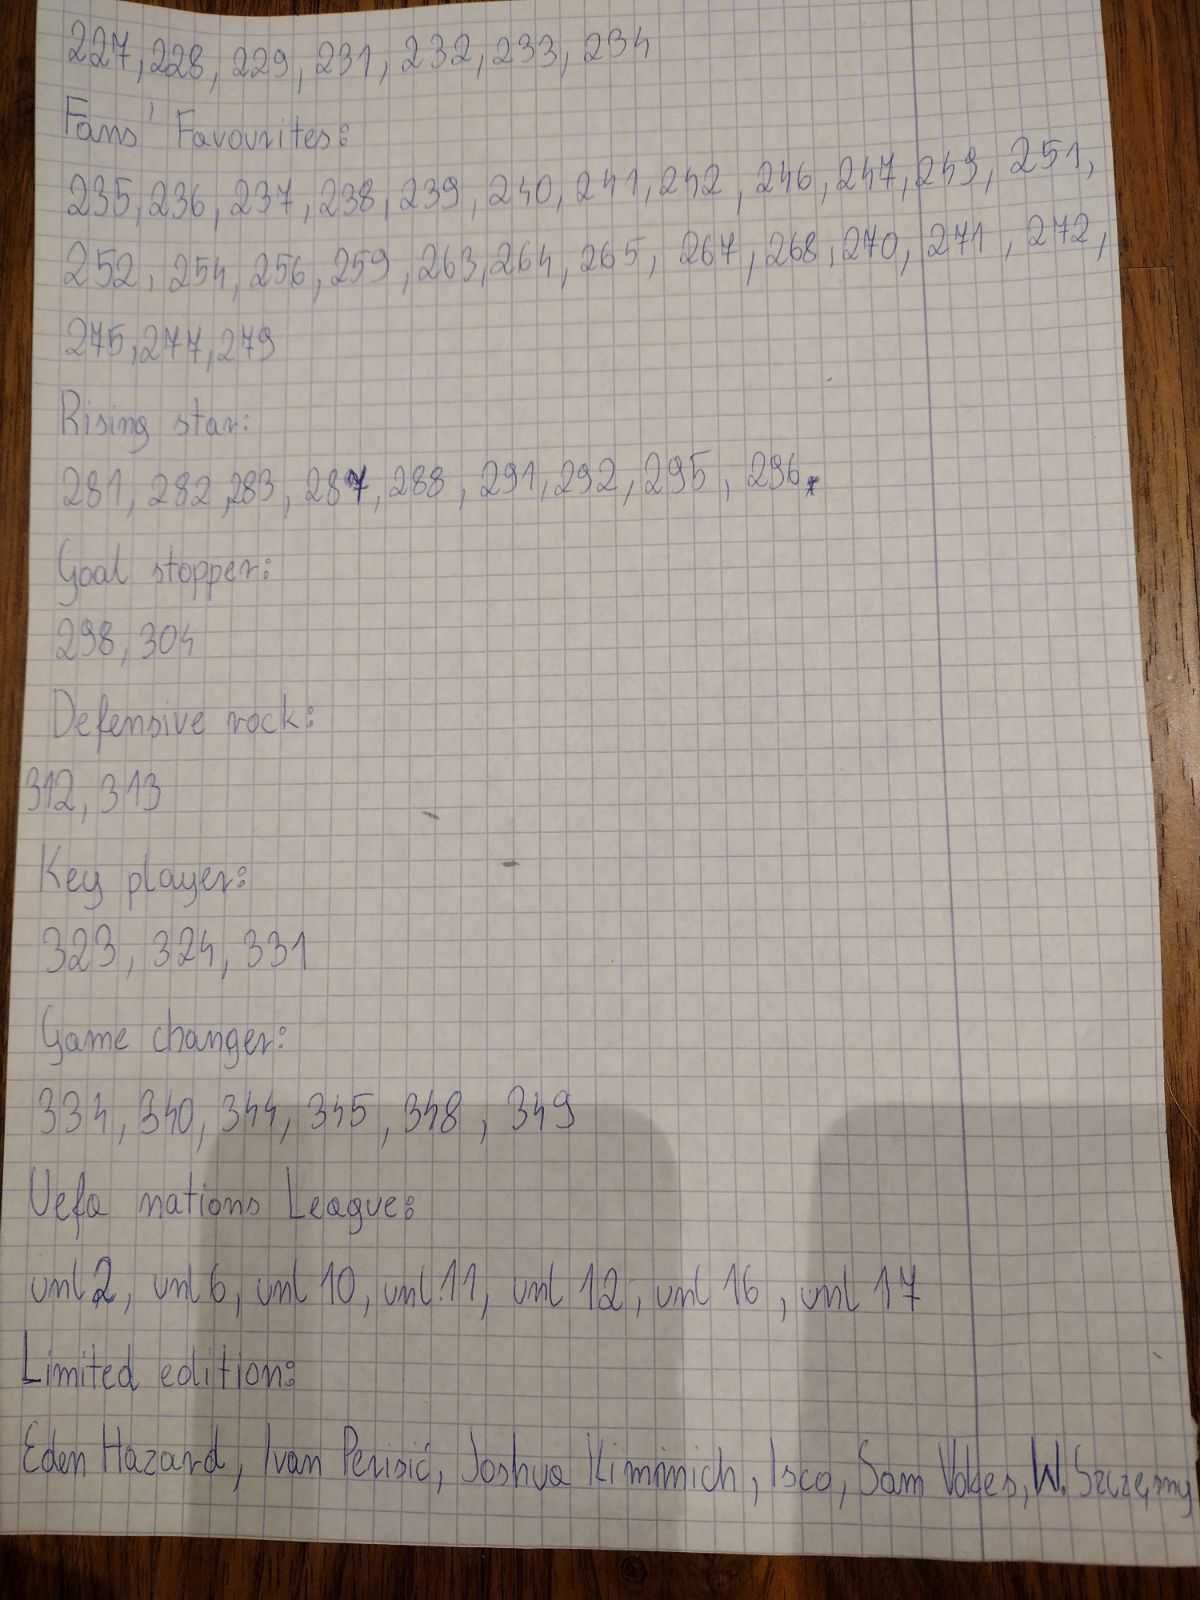 227, 228, 229, 231, 232, 233, 234
Fans' Favourites:
235, 236, 237, 238, 239, 240, 241, 242, 246, 247, 249, 251,
252, 254, 256, 259, 263, 264, 265, 267, 268, 270, 271, 272,
275, 277, 279
Rising star:
281, 282, 283, 287, 288, 291, 292, 295, 296.
Goal stopper:
298, 304
Defensive rock:
312, 313
Key player:
323, 324, 331
Game changer:
334, 340, 344, 345, 348, 349
Uefa nations League:
unl 2, unl 6, unl 10, unl 11, unl 12, unl 16, unl 17
Limited edition:
Eden Hazard, Ivan Perisić, Joshua Kimmich, Isco, Sam Vokes, W. Szczęsny